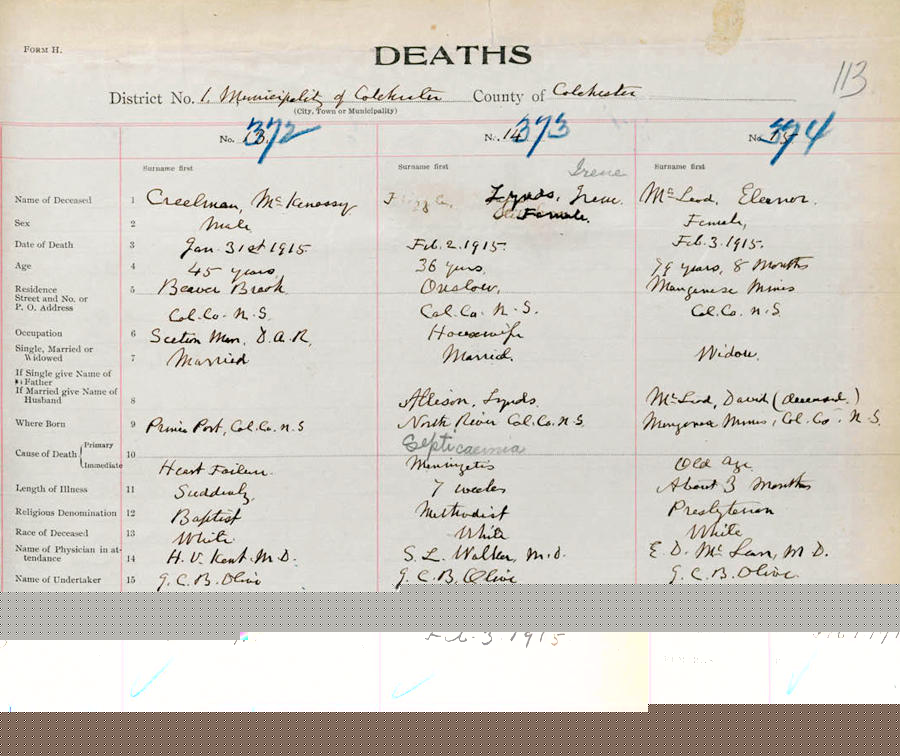 FORM H.
DEATHS
113
District No. 1. Municipality of Colchester County of Colchester
(City, Town or Municipality)
No. 13. 372 No. 14 373 No. 15 374
Surname first Surname first Surname first
Irene
Name of Deceased 1 Creelman, McKenassy Lynds, Irene. McLeod, Eleanor.
Sex 2 Male Female. Female,
Date of Death 3 Jan. 31st 1915. Feb. 2. 1915. Feb. 3. 1915.
Age 4 45 years, 36 years, 79 years, 8 Months
Residence 5 Beaver Brook Onslow, Manganese Mines
Street and No. or
P. O. Address Col. Co. N. S. Col. Co. N. S. Col. Co. N. S.
Occupation 6 Section Man, D. A. R, Housewife
Single, Married or
Widowed 7 Married Married. Widow.
If Single give Name of
Father
If Married give Name of
Husband 8 Allison, Lynds, McLeod, David (deceased.)
Where Born 9 Princi Port, Col. Co. N. S North River Col. Co. N. S. Manganese Mines, Col. Co. N. S.
Septicaemia
Cause of Death { Primary 10
Immediate Heart Failure. Meningetis Old age.
Length of Illness 11 Suddenly, 7 weeks About 3 Months
Religious Denomination 12 Baptist Methodist Presbyterian
Race of Deceased 13 White White White
Name of Physician in at-
tendance 14 H. V. Kent. M. D. S. L. Walker, M. D. E. D. McLean, M D.
Name of Undertaker 15 G. C. B. Olive G. C. B. Olive G. C. B. Olive
Feb. 3. 1915